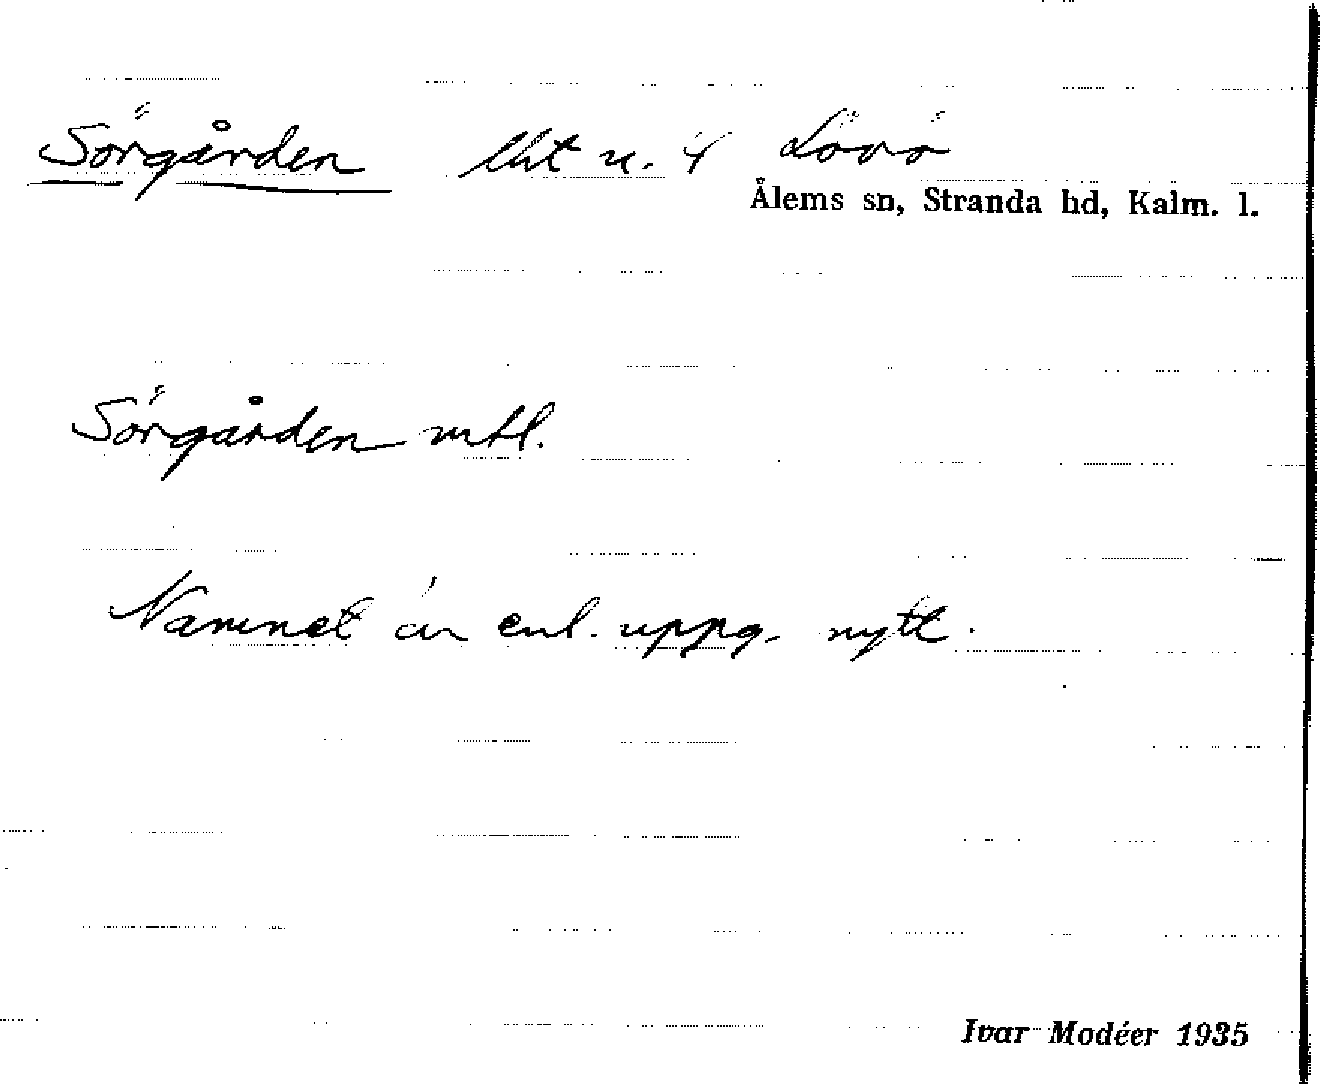 Sörgården Utst u. 4 Lövö
Ålems sn, Stranda hd, Kalm. l.
Sörgården mtl.
Namnet är enl. uppg. nytt.
Ivar Modéer 1935